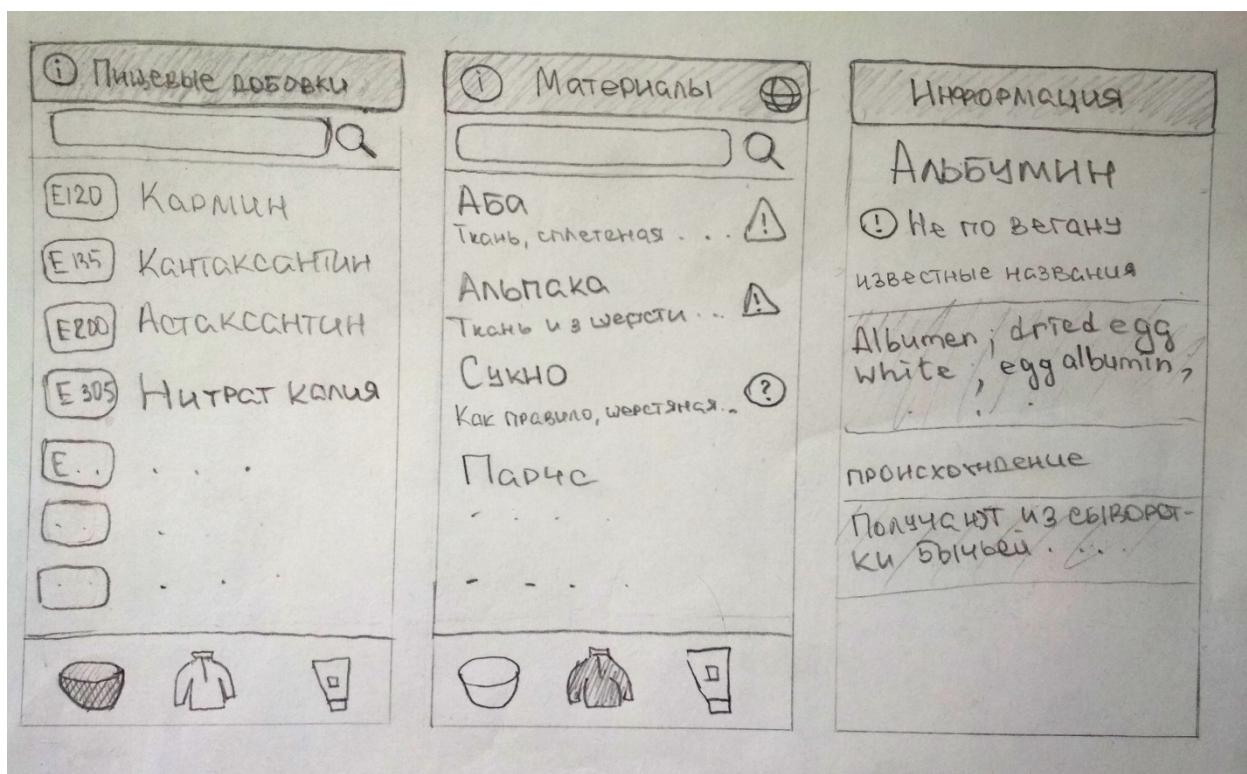 i Пищевые добовки
E120 Кармин
E135 Кантаксантин
E200 Астаксантин
E305 Нитрат калия
E . . . . .
i Материалы
Аба
Ткань, сплетеная . . . !
Альпака
Ткань из шерсти ... !
Сукно
Как правило, шерстяная... ?
Парча
Информация
Альбумин
! Не по вегану
известные названия
Albumen, dried egg
white, egg albumin,
. . .
происхождение
Получают из сыворот-
ки бычьей . ...